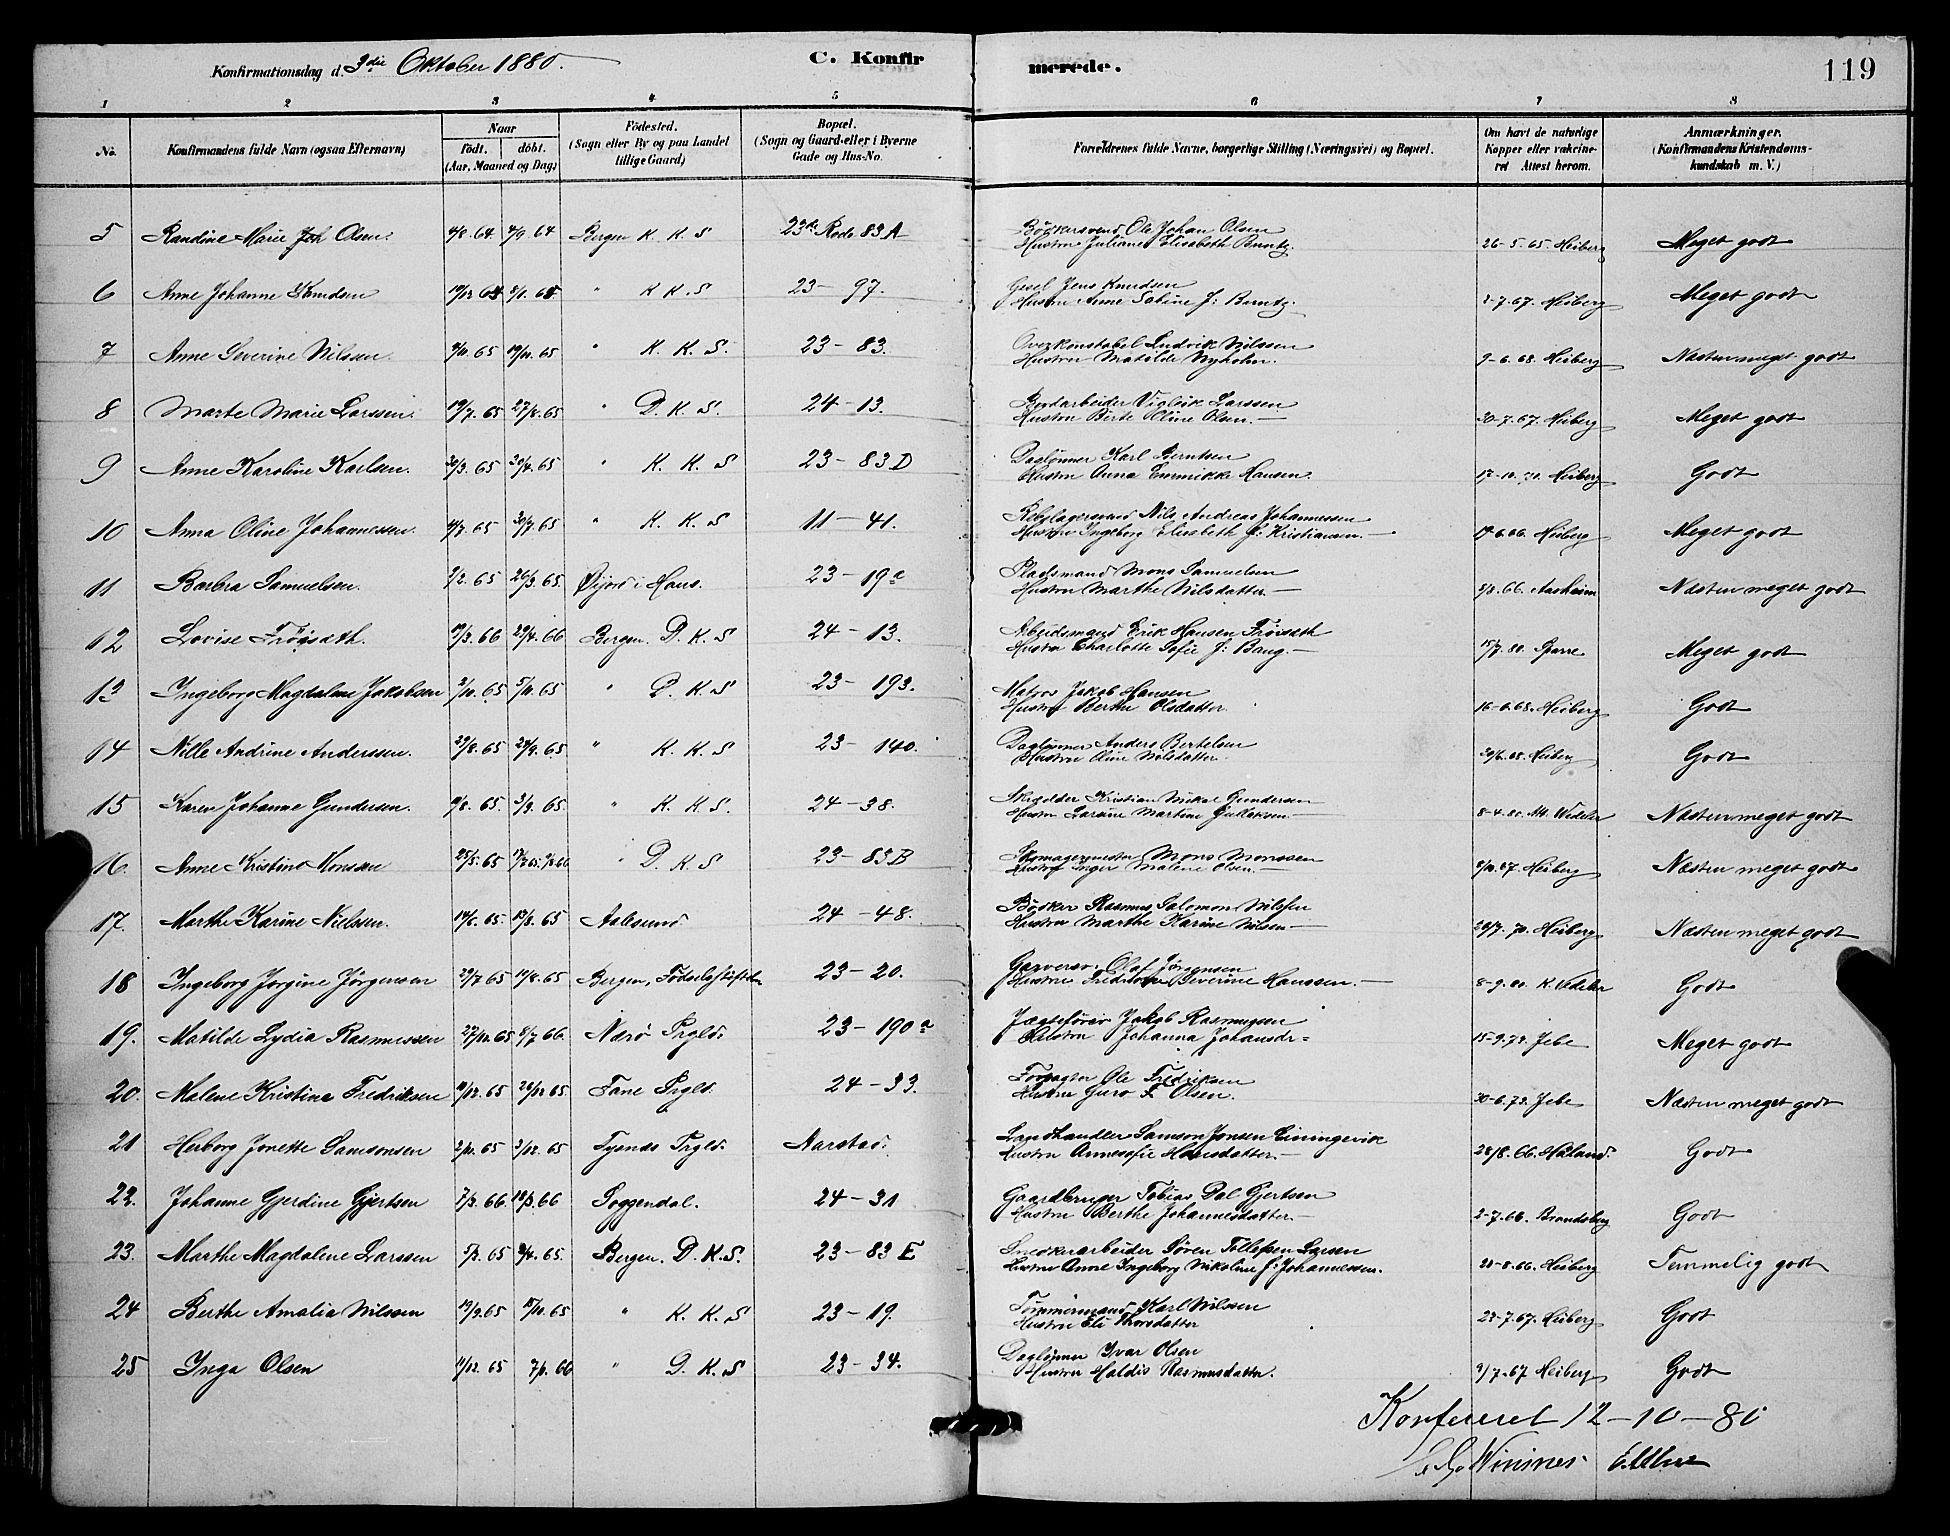 Konfirmationsdag d. 3die Oktober 1880.
C. Konfirmerede.
119
1 2 3 4 5 6 7 8
No. Konfirmandens fulde Navn (ogsaa Efternavn) Naar födt. döbt. (Aar, Maaned og Dag) Födested. (Sogn eller By og paa Landet tillige Gaard) Bopæl. (Sogn og Gaard eller i Byerne Gade og Hus-No. Forældrenes fulde Navne, borgerlige Stilling (Næringsvei) og Bopæl. Om havt de naturlige Kopper eller vakcineret Attest herom. Anmærkninger. (Konfirmandens Kristendomskundskab m. V.)
5 Randine Marie Joh Olsen. 4/8. 64 4/9. 64 Bergen K. K. S 23de Rode 83 A Bödkersvend Ole Johan Olsen 26-5.65. Heiberg Meget godt
Hustru Juliane Elisabeth Berntz.
6 Anne Johanne Knudsen " K K. S 23-97. Gesel Jens Knudsen 2-7.67. Heiberg Meget godt
Hustru Anne Sabine f: Berntz.
7 Anne Severine Nilssen. " K. K. S. 23-83. Overkonstabel Ludvik Nilssen 9-6.68. Heiberg Næsten meget godt
Hustru Matilde Nyholm.
8 Marte Marie Larssen. 19/7. 65 27/8. 65 " D. K. S. 24-13. Bordarbeider Vigleik Larssen 30-7.67. Heiberg Meget godt
Hustru Berte Oline Olsen.
9 Anne Karoline Karlsen. 30/3. 65 30/4. 65 " K. K. S 23-83 D Daglönner Karl Berntsen 17-10.71. Heiberg Godt
Hustru Anna Emmikke Hansen.
10 Anna Oline Johannessen. 4/7. 65 30/7. 65 " K. K. S 11-41. Rebslagersvend Nils Andreas Johannessen 17-6.66. Heiberg Meget godt
Hustru Ingeborg Elisabeth f: Kristiansen.
11 Barbra Samuelsen. 2/2. 65 26/3. 65 Öijord i Haus. 23-19a Pladsmand Mons Samuelsen 2/8. 66. Aasheim Næsten meget godt
Hustru Marthe Nilsdatter
12 Lovise Fröysæth. 19/3. 66 29/4. 66 Bergen. D. K. S 24-13. Arbeidsmand Erik Hansen Fröisæth 15/9. 80. Sparre Meget godt
Hustru Charlotte Sofie f: Bang.
13 Ingeborg Magdalene Jakobsen 3/10. 65 5/11. 65 " D. K. S 23-193. Matros Jakob Hansen 16-6.68. Heiberg Godt
Hustru Berthe Olsdatter
14 Nille Andrine Anderssen. 29/8. 65 24/9. 65 " K. K. S 23-140. Daglönner Anders Bertelsen 30/6. 68. Heiberg Godt
Hustru Oline Nilsdatter
15 Karen Johanne Gundersen. 9/8. 65 3/9. 65. " K. K. S. 24-38. Skrædder Kristian Mikal Gundersen 8-4.80. Wedeler Næsten meget godt
Hustru Larsine Martine
16. Anne Kristine Monsen 25/5. 65 " D. K. S 23-83 B Skomagermester Mons Monssen 2/10. 67. Heiberg Næsten meget godt
Hustru Inger Malene Olsen.
17. Marthe Karine Nielssen. 14/6. 65 13/8. 65 Aalesund 24-48. Bödker Rasmus Salomon Nilssen 28/7. 70. Heiberg Næsten meget godt
Hustru Marthe Karine Nilsen
18 Ingeborg Jörgine Jörgensen 29/7. 65 19/8. 65 Bergen, Födselsstiftelsen 23-20. Garversv. Olaf Jörgensen 8-9.80. K. Vedeler Godt
Hustru Fredrikke Severine Hanssen.
19. Matilde Lydia Rasmussen 27/12. 65 8/7 66. Nærö Prgld. 23-190a Jægtefører Jakob Rasmussen 15-9.79. Jebe Meget godt
Hustru Johanna Johansdr=
20. Malene Kristine Fredriksen 19/12. 65 26/12 65 Fane Prgld. 24-33. Forpagter Ole Fredriksen 30-6.79. Jebe Næsten meget godt
Hustru Guro F. Olsen.
21 Herborg Jonette Samsonsen 2/11. 65 3/12. 65 Tysnes Prgld. Aarstad. Landhandler Samson Jonsen Einingevik 28/8. 66. Haaland. Godt
Hustru Annesofie Hansdatter.
22. Johanne Gjerdine Gjertsen 7/3. 66. Soggendal. 24-31 Gaardbruger Tobias Dal Gjertsen 2-7.66. Brandsberg Godt
Hustru Berthe Johannesdatter.
23. Marthe Magdalene Larssen 5/3. 65 65. Bergen. D. K. S. 23-83 E Snedkerarbeider Sören Tollefsen Larsen 28-8.66. Heiberg Temmelig godt
Hustru Anne Ingeborg Nikoline f: Johannessen.
24 Berthe Amalia Nilssen 19/9. 65 15/10. 65 " K. K. S 23-19. Tömmermand Karl Nilssen 27-7.67. Heiberg Godt
Hustru Eli Thorsdatter
25 Inga Olsen 11/12. 65 7/1. 66 " D. K. S 23-34. Daglönner Ivar Olsen 9/7. 67 Heiberg Godt
Hustru Haldis Rasmusdatter.
Konfereret 12-10-80
Winsnes